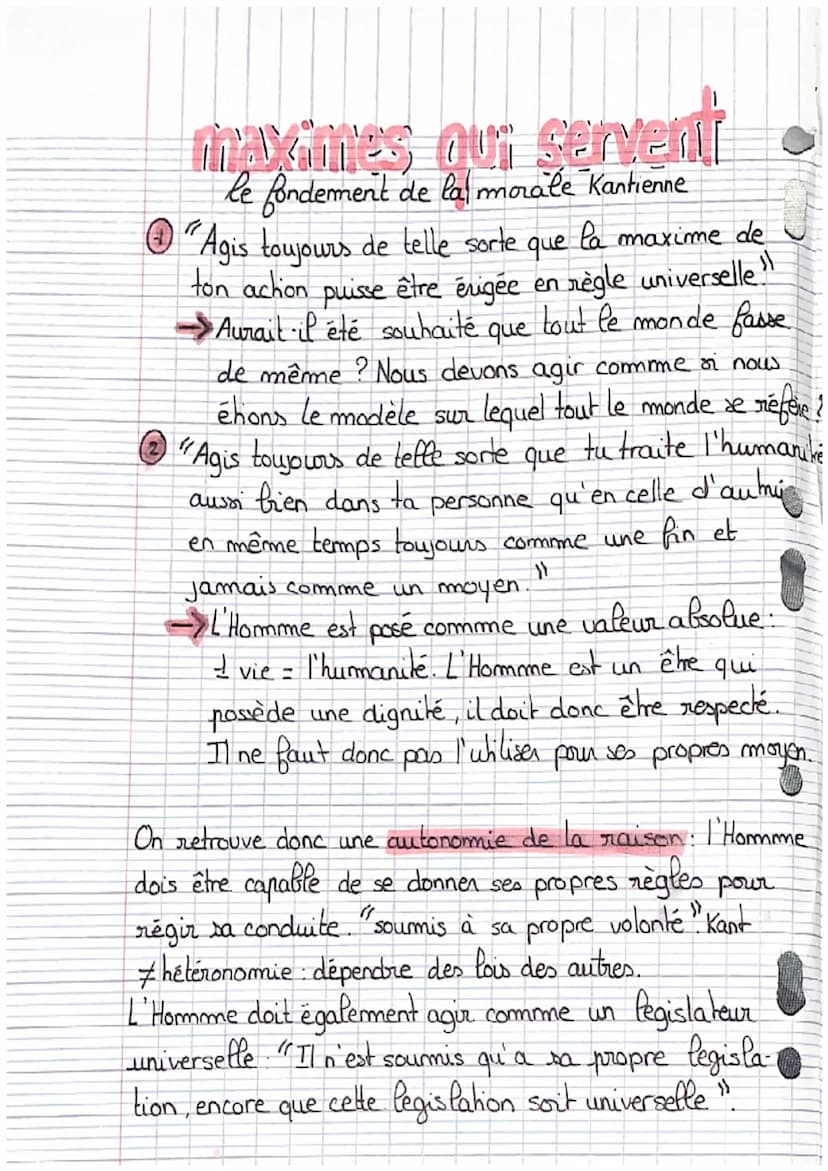 maximes qui servent
le fondement de la morale Kantienne
1 "Agis toujours de telle sorte que la maxime de
ton action puisse être érigée en règle universelle."
→ Aurait-il été souhaité que tout le monde fasse
de même ? Nous devons agir comme si nous
étions le modèle sur lequel tout le monde se réfère ?
2 "Agis toujours de telle sorte que tu traite l'humanité
aussi bien dans ta personne qu'en celle d'autrui
en même temps toujours comme une fin et
jamais comme un moyen."
→ L'Homme est posé comme une valeur absolue :
1 vie = l'humanité. L'Homme est un être qui
possède une dignité, il doit donc être respecté.
Il ne faut donc pas l'utiliser pour ses propres moyen.
On retrouve donc une autonomie de la raison : l'Homme
dois être capable de se donner ses propres règles pour
régir sa conduite. "soumis à sa propre volonté". Kant
≠ hétéronomie : dépendre des lois des autres.
L'Homme doit également agir comme un législateur
universelle. "Il n'est soumis qu'a sa propre législa-
tion, encore que cette législation soit universelle".